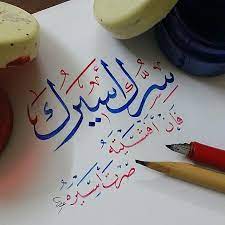 سِرُّكَ أسيرك
فإن أفشيتَه
صرتَ أسيرَه